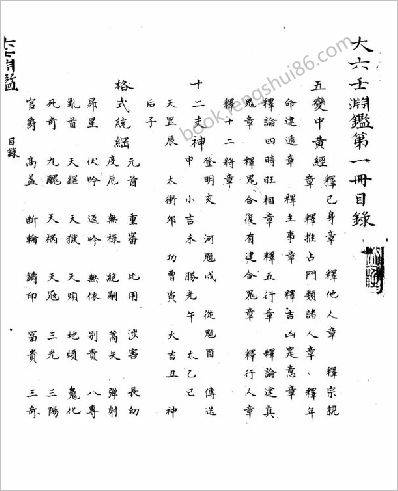 大六壬淵鑑第一冊目錄
五變中黃經
釋己身章 釋他人章 釋宗親
章 釋推占門類諸人章 釋年
命建造章 釋主事章 釋吉凶定意章
釋論四時旺相章 釋五行章 釋論逮真
鬼章 釋鬼合復有建合鬼章 釋行人章
釋十二將章
十二支神
登明亥 河魁戌 從魁酉 傳送
申 小吉未 勝光午 太乙巳
天罡辰 太衝卯 功曹寅 大吉丑 神
后子
格式統縂
元首 重審 比用 涉害 長幼
度厄 無祿 絕嗣 蒿矢 彈射
昴星 伏吟 返吟 無依 別責 八專
亂首 天獄 地煩
死奇 九醜 天禍 天寇 三光 三陽
官爵 高蓋 斲輪 鑄印 富貴 三奇
大六壬淵鑑
目錄
book.fengshui86.com